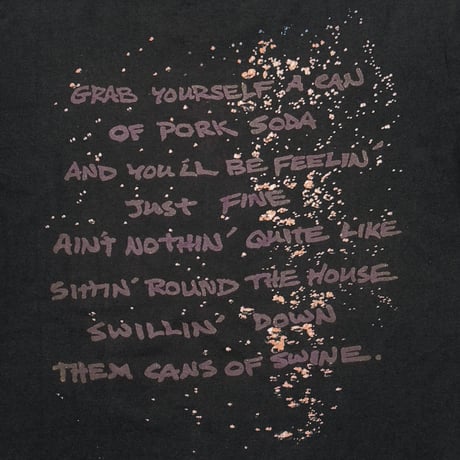 GRAB YOURSELF A CAN
OF PORK SODA
AND YOU'LL BE FEELIN'
JUST FINE
AIN'T NOTHIN' QUITE LIKE
SITTIN' ROUND THE HOUSE
SWILLIN' DOWN
THEM CANS OF SWINE.